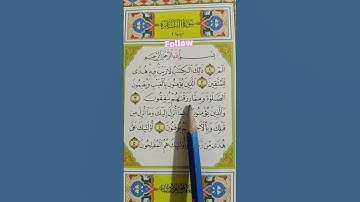 سورة البقرة
Follow
بسم الله الرحمن الرحيم
الم ذلك الكتب لا ريب فيه هدى
للمتقين الذين يؤمنون بالغيب ويقيمون
الصلوة ومما رزقنهم ينفقون
والذين يؤمنون بما أنزل إليك وما أنزل من
قبلك وبالأخرة هم يوقنون أولئك على
هدى من ربهم وأولئك هم المفلحون